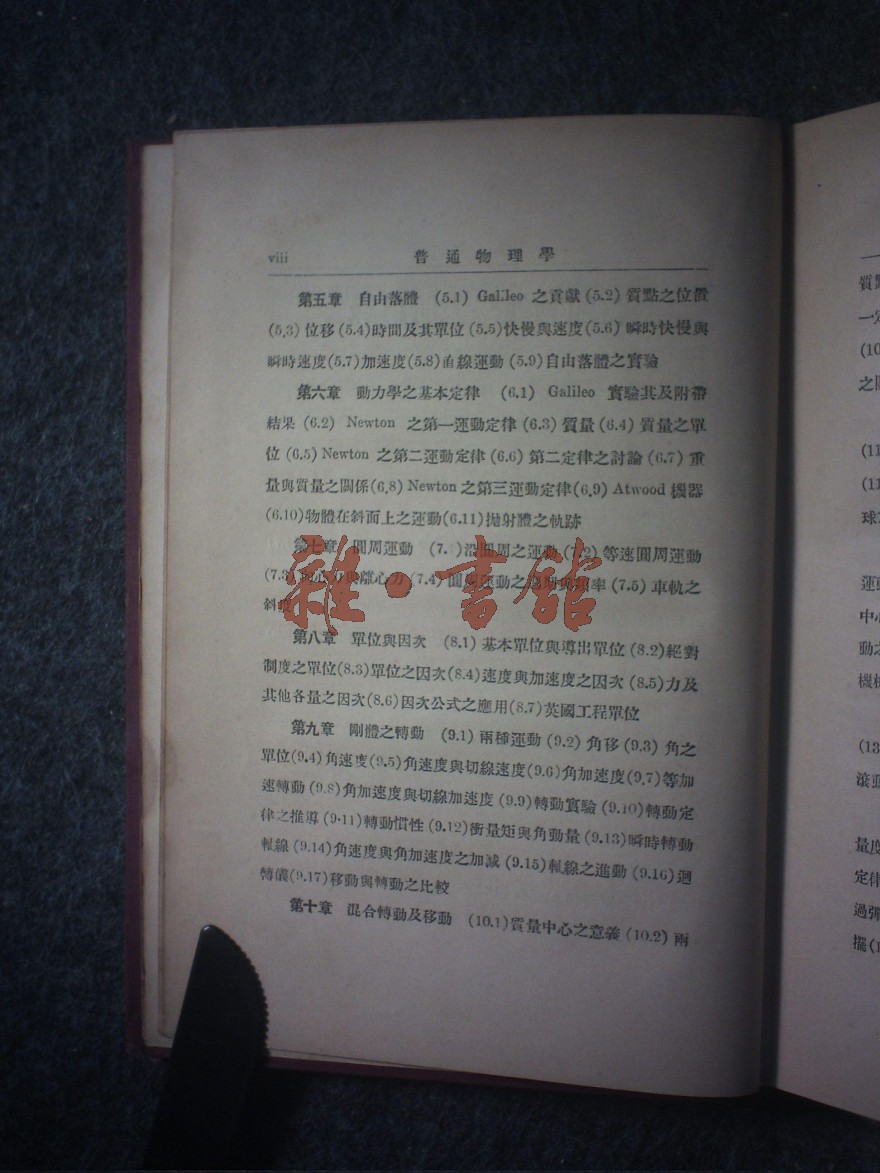 viii 普通物理學
第五章 自由落體 (5.1) Galileo 之貢獻 (5.2) 質點之位置
(5.3) 位移 (5.4)時間及其單位 (5.5)快慢與速度(5.6) 瞬時快慢與
瞬時速度(5.7)加速度(5.8)直線運動 (5.9)自由落體之實驗
第六章 動力學之基本定律 (6.1) Galileo 實驗其及附帶
結果 (6.2) Newton 之第一運動定律 (6.3) 質量 (6.4) 質量之單
位 (6.5) Newton 之第二運動定律 (6.6) 第二定律之討論 (6.7) 重
量與質量之關係(6.8) Newton 之第三運動定律(6.9) Atwood 機器
(6.10)物體在斜面上之運動(6.11)拋射體之軌跡
第七章 圓周運動 (7.1)沿圓周之運動 (7.2) 等速圓周運動
(7.3)向心力與離心力 (7.4) 圓周運動之週期與頻率 (7.5) 車軌之
斜度
雜·書館
第八章 單位與因次 (8.1) 基本單位與導出單位 (8.2)絕對
制度之單位(8.3)單位之因次(8.4)速度與加速度之因次 (8.5)力及
其他各量之因次(8.6)因次公式之應用(8.7)英國工程單位
第九章 剛體之轉動 (9.1) 兩種運動 (9.2) 角移 (9.3) 角之
單位(9.4)角速度(9.5)角速度與切線速度(9.6)角加速度(9.7)等加
速轉動 (9.8)角加速度與切線加速度 (9.9)轉動實驗 (9.10)轉動定
律之推導 (9.11)轉動慣性(9.12)衝量矩與角動量(9.13)瞬時轉動
軸線 (9.14)角速度與角加速度之加減 (9.15)軸線之進動 (9.16)迴
轉儀(9.17)移動與轉動之比較
第十章 混合轉動及移動 (10.1)質量中心之意義 (10.2) 兩
質點
一定
(10
之關
(11
(11
球
運動
中心
動之
機械
(13
滾動
量度
定律
過彈
擺(1